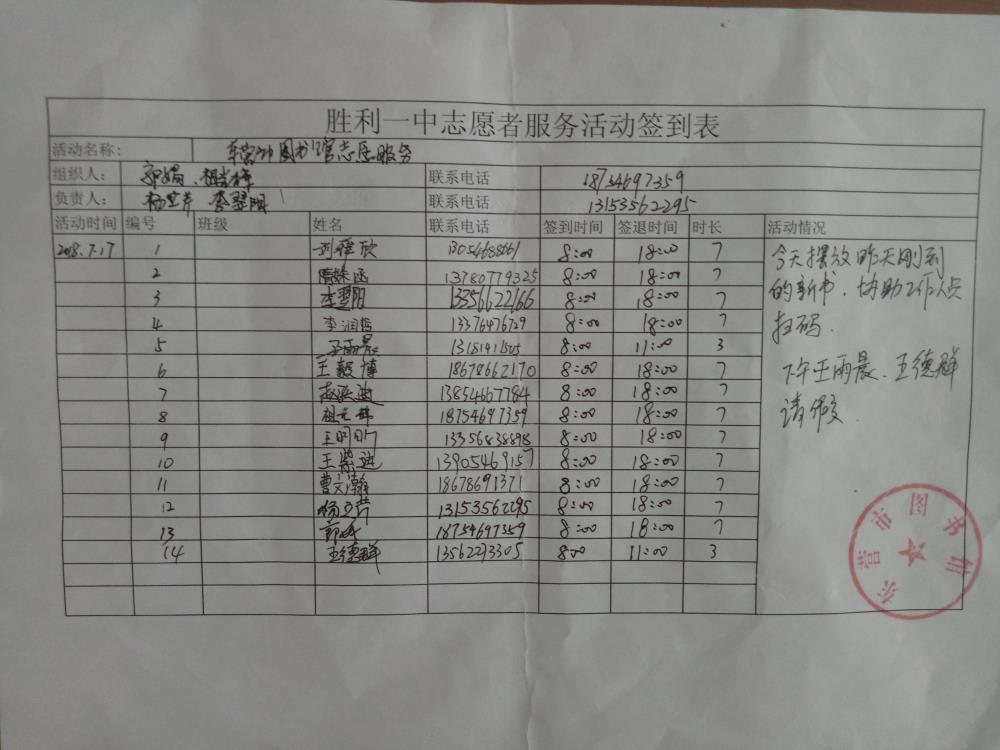 胜利一中志愿者服务活动签到表
活动名称: 东营市图书馆志愿服务
组织人: 联系电话 18754697359
负责人: 李翌阳 联系电话 13153562295
活动时间 编号 班级 姓名 联系电话 签到时间 签退时间 时长 活动情况
2018.7.17 1 8:00 18:00 7
2 13780779325 8:00 18:00 7
3 李翌阳 13356622166 8:00 18:00 7
4 李润哲 13376476729 8:00 18:00 7
5 王雨晨 8:00 11:00 3
6 王毅博 18678662170 8:00 18:00 7
7 13854667784 8:00 18:00 7
8 18754697359 8:00 18:00 7
9 王明昕 13356838898 8:00 18:00 7
10 王紫进 13905469157 8:00 18:00 7
11 曹文瀚 18678691371 8:00 18:00 7
12 13153562295 8:00 18:00 7
13 18754697359 8:00 18:00 7
14 王德群 13562293305 8:00 11:00 3
今天摆放昨天刚到
的新书,协助工作人员
扫码.
下午王雨晨、王德群
请假.
东营市图书馆